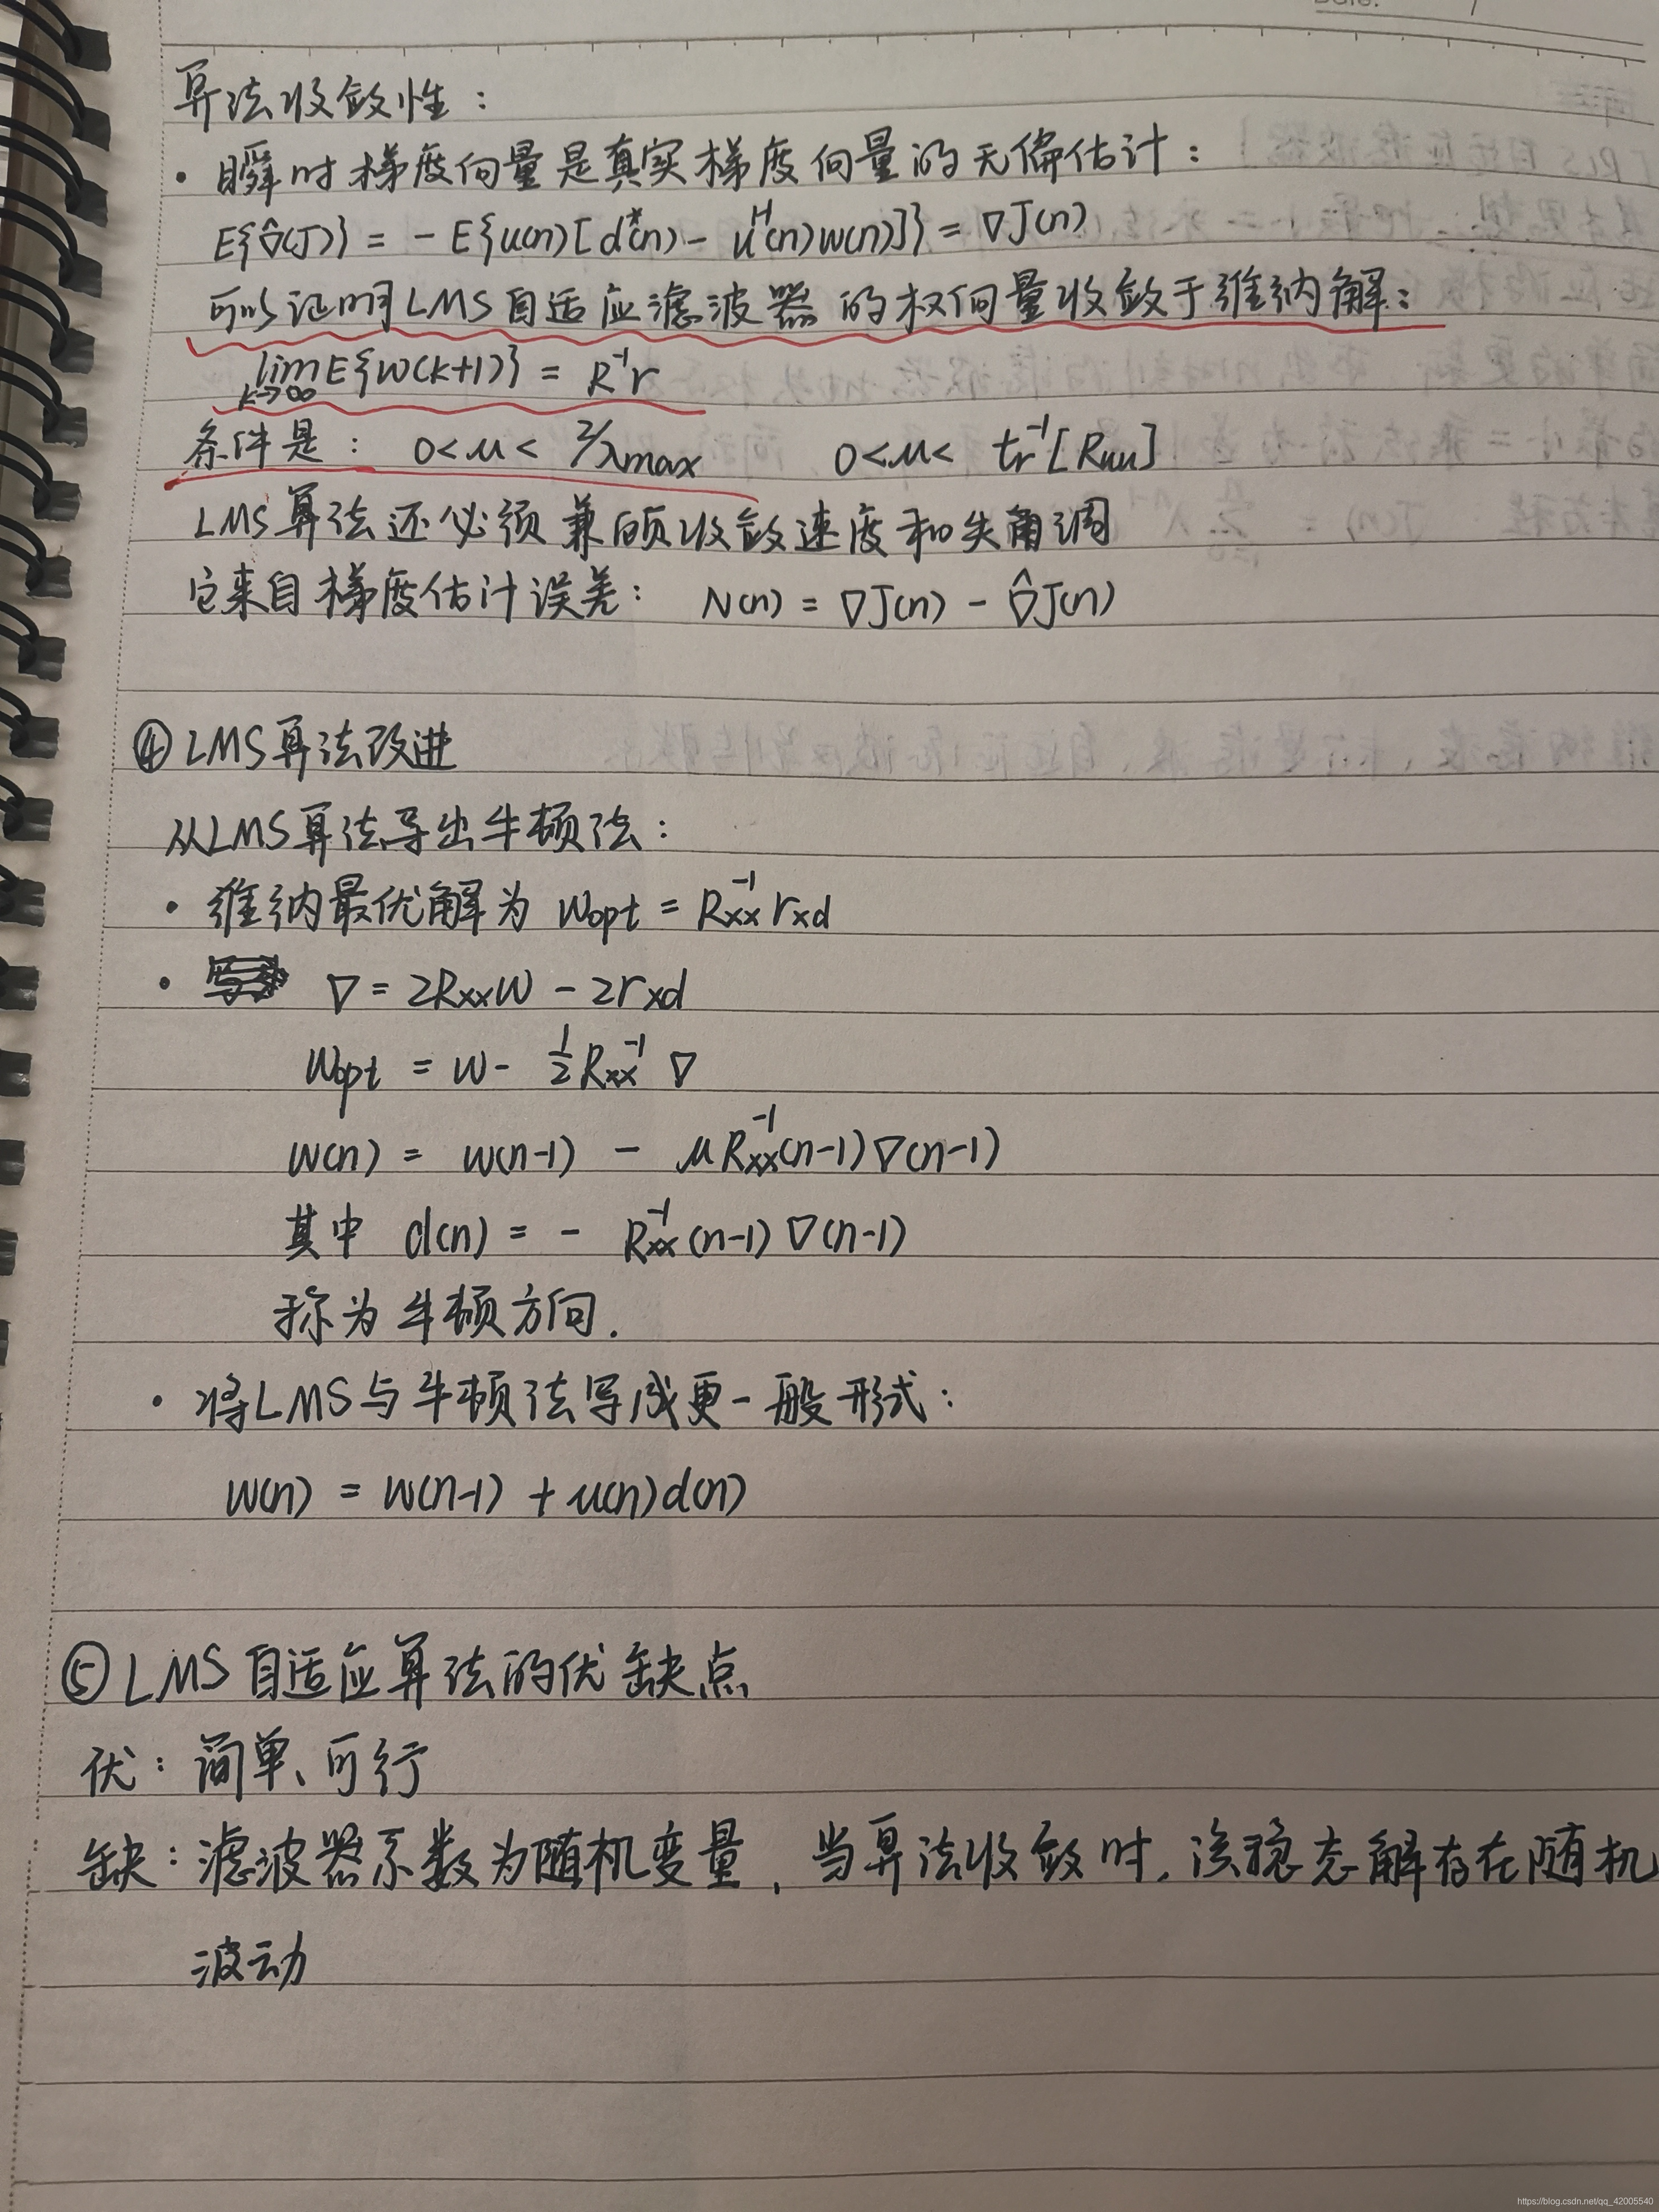 Date: /
算法收敛性：
· 瞬时梯度向量是真实梯度向量的无偏估计：
E{∇̂(J)} = - E{u(n)[d*(n) - u^H(n)w(n)]} = ∇J(n)
可以证明LMS自适应滤波器的权向量收敛于维纳解：
lim_{k→∞} E{W(k+1)} = R⁻¹r
条件是： 0<μ< 2/λmax 0<μ< tr⁻¹[Ruu]
LMS算法还必须兼顾收敛速度和失调
它来自梯度估计误差： N(n) = ∇J(n) - ∇̂J(n)
④ LMS算法改进
从LMS算法导出牛顿法：
· 维纳最优解为 Wopt = Rxx⁻¹ rxd
· ∇ = 2RxxW - 2rxd
Wopt = W - 1/2 Rxx⁻¹ ∇
W(n) = W(n-1) - μRxx⁻¹(n-1)∇(n-1)
其中 d(n) = - Rxx⁻¹(n-1)∇(n-1)
称为牛顿方向.
· 将LMS与牛顿法写成更一般形式：
W(n) = W(n-1) + μ(n)d(n)
⑤ LMS自适应算法的优缺点
优：简单、可行
缺：滤波器系数为随机变量，当算法收敛时，该稳态解存在随机
波动
https://blog.csdn.net/qq_42005540